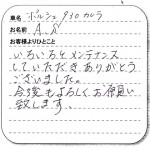 車名 ポルシェ930カレラ
お名前 A.S
お客様よりひとこと
いろいろとメンテナンス
していただきありがとう
ございました。
今後もよろしくお願い
致します。